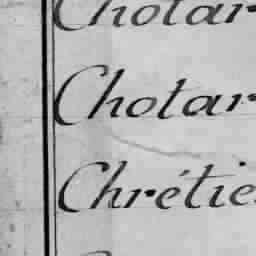 Chotar
Chotar
Chrétie